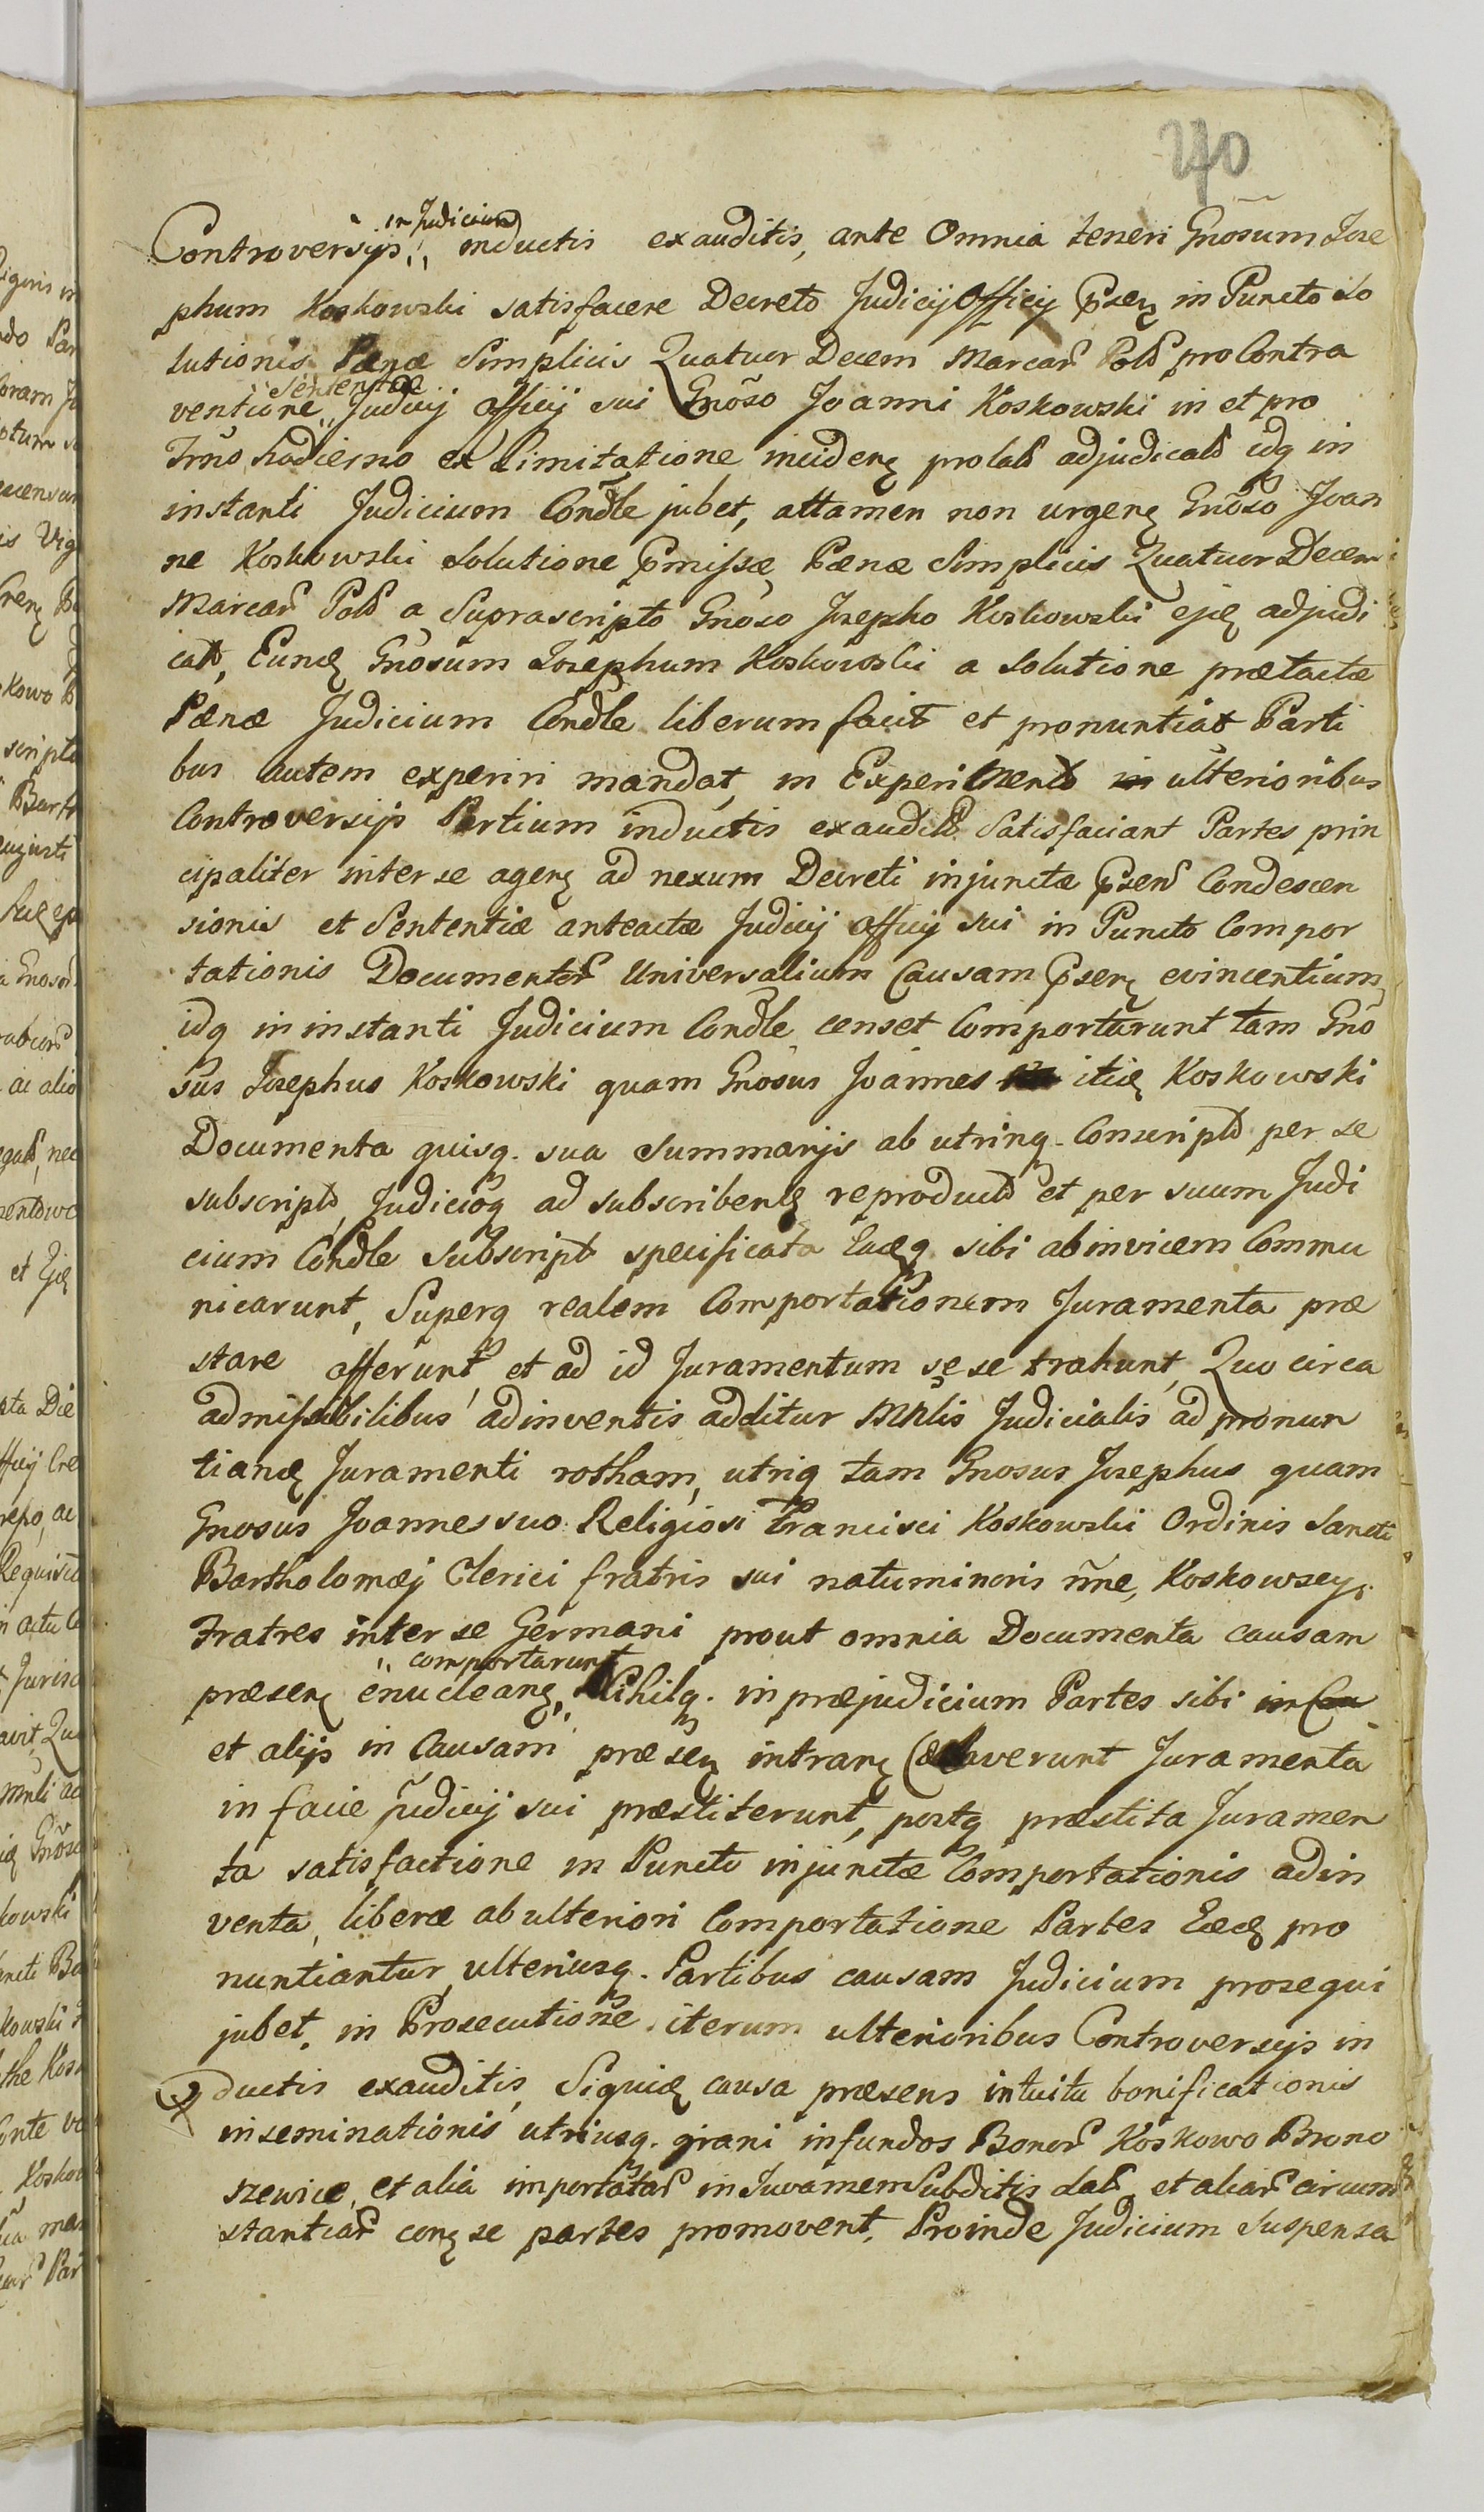 240
in Judicium
Controversys,, inductis exauditis, ante Omnia teneri Gnõsum Jose
phum Koskowski satisfacere Decreto Judicij Officij Pserȩ in Puncto So
lutionis Pænæ Simplicis Quatuor Decem Marcar Pold pro Contra
Sententiæ
ventione,, Judicij Officij sui Gnõso Joanni Koskowski in et pro
Trñno hodierno ex Limitatione inciderȩ prolatd adjudicatd idq in
instanti Judicium Condle jubet, attamen non urgenȩ Gnõso Joan
ne Koskowski Solutione Pmissæ Pænæ Simplicis Quatuor Decem
Marcar Pold a Suprascripto Gnõso Josepho Koskowski ejȩ adjudi
catd, Eundȩ Gnõsum Josephum Koskowski a Solutione prætactæ
Pænæ Judicium Condle liberum facit et pronuntiat Parti
bus autem experiri mandat, in Experimentd in ulterioribus
Controversijs Partium inductis exauditd Satisfaciant Partes prin
cipaliter inter se agenȩ ad nexum Decreti injunctæ Psend Condescen
sionis et Sententiæ anteactæ Judicij Officij sui in Puncto Compor
tationis Documentor Universalium Causam Psenȩ evincentium,
idq in instanti Judicium Condle censet Comportarunt tam Gnõ
sus Josephus Koskowski quam Gnosus Joannes itiȩ Koskowski
Documenta quisq. sua Summarijs ab utrinq. Conscriptd per se
subscriptd, Judicioq ad subscribendȩ reproductd et per suum Judi
cium Condle Subscript specificata Eaȩq sibi abinvicem Commu
nicarunt, Superq realem Comportationem Juramenta præ
stare offerunt, et ad id Juramentum sese trahunt, Quo circa
admissibilibus adinventis additur Mñlis Judicialis ad pronun
tiandȩ Juramenti rotham, utriq tam Gnosus Josephus quam
Gnosus Joannes suo Religiosi Francisci Koskowski Ordinis Sancti
Bartholomæj Clerici fratris sui natuminoris ñne, Koskowscy
Fratres inter se Germani prout omnia Documenta causam
,, comportarunt
præsenȩ enucleanȩ,, Nihilq. in præjudicium Partes sibi in Cau
et alijs in Causam præsenȩ intranȩ Celaverunt Juramenta
in facie judicij sui præstiterunt, postq præstita Juramen
ta satisfactione in Puncto injunctæ Comportationis adin
venta, liberæ ab ulteriori Comportatione Partes Eædȩ pro
nuntiantur ulteriusq. Partibus causam Judicium prosequi
jubet, in Prosecutione iterum ulterioribus Controversijs in
ductis exauditis, Siquidȩ causa præsens intuitu bonificationis
inseminationis utriusq. grani in fundos Bonor Koskowo Brono
szewice, et alia importatar in Juvamem Subditis datd et aliar circum
stantiar conȩ se partes promovent, Proinde Judicium Suspensa